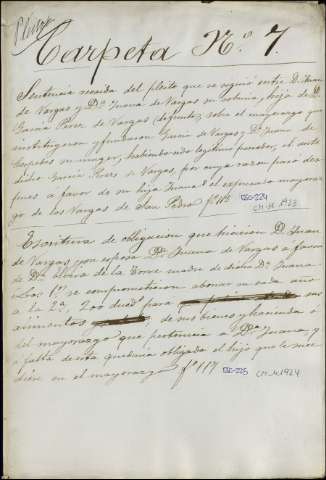 Pleitos
Carpeta N.º 7.
Sentencia recaida del pleito que se siguió entre D. Juan
de Vargas y D.ª Juana de Vargas su sobrina, hija de D.
Garcia Perez de Vargas (difunto), sobre el mayorazgo que
instituyeron y fundaron Garcia de Vargas y D.ª Juana de
su muger, habiendo sido legitimo poseedor, el ante
dicho Garcia Perez de Vargas, por cuya razon pasa des
pues á favor de su hija Juana el espresado mayoraz
go de los Vargas de San Pedro. fº 113
CM.14.1923
Escritura de obligacion que hicieron D. Juan
de Vargas y su esposa D.ª Juana de Vargas á favor
de D.ª Maria de la Torre madre de dicha D.ª Juana.
Los 1.os se comprometieron abonar en cada año
a la 2.ª, 200 ducd.s para sus
alimentos, de sus bienes y hacienda ó
del mayorazgo que pertenecia á D.ª Juana, y
a falta de esta quedaria obligado el hijo que le suce
diere en el mayorazgo fº 117 CM.14.1924